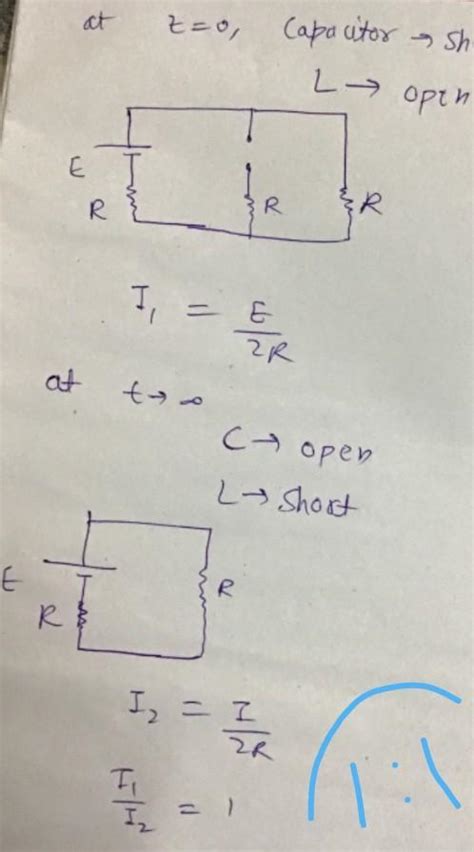 at t=0, Capacitor → Sh
L → open
E
R
R
R
I₁ = E/2R
at t → ∞
C → open
L → Short
E
R
R
I₂ = I/2R
I₁/I₂ = 1
1:1